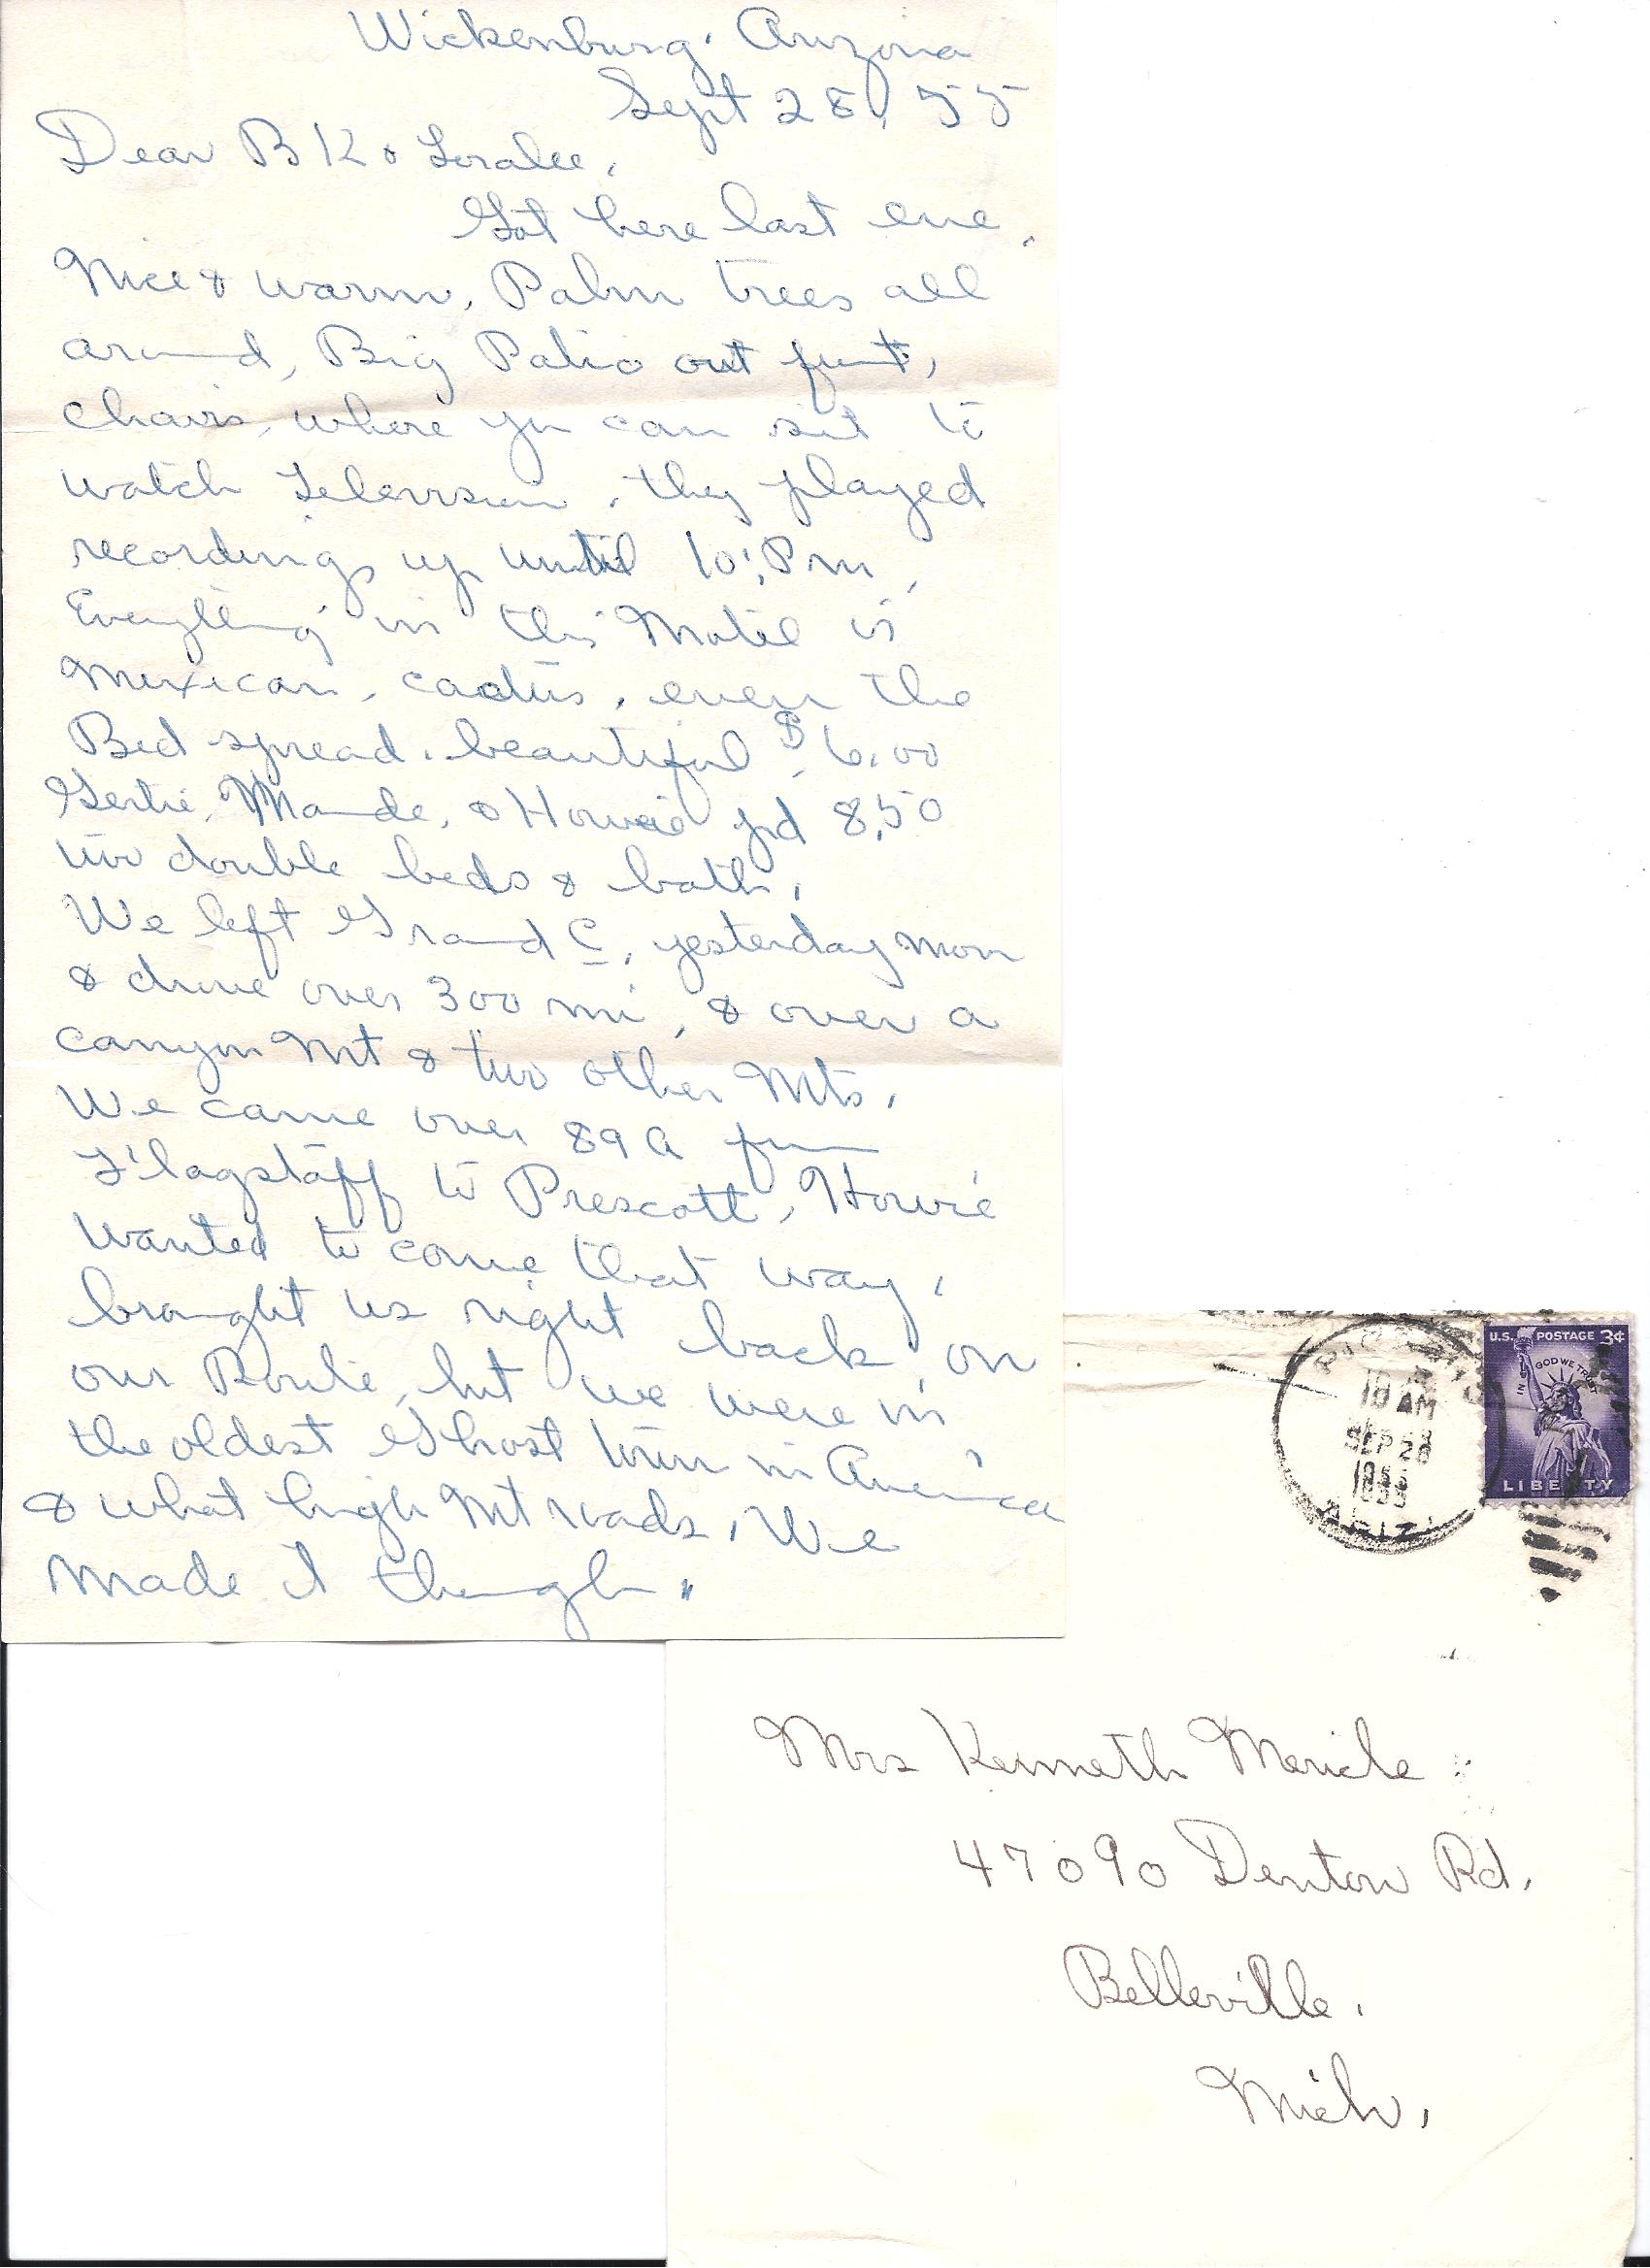 Wickenburg. Arizona
Sept 28, 55
Dear B K & Loralee,
Got here last eve,
Nice & warm, Palm trees all
around, Big Patio out front,
chairs, where you can sit to
watch Television, they played
recordings up until 10: Pm,
Everything in this Motel is
Mexican, cactus, even the
Bed spread. beautiful $6.00
Gertie, Maude, & Howie pd 8,50
two double beds & bath,
We left Grand C, yesterday morn
& drive over 300 mi, & over a
canyon Mt & two other Mts,
We came over 89 A from
Flagstaff to Prescott, Howie
wanted to come that way,
brought us right back on
our Route, but we were in
the oldest Ghost town in America
& what high Mt roads, We
made it though,
U.S. POSTAGE 3¢
IN GOD WE TRUST
LIBERTY
AM
SEP 28
ARIZ
Mrs Kenneth Mericle
47090 Denton Rd,
Belleville,
Mich,